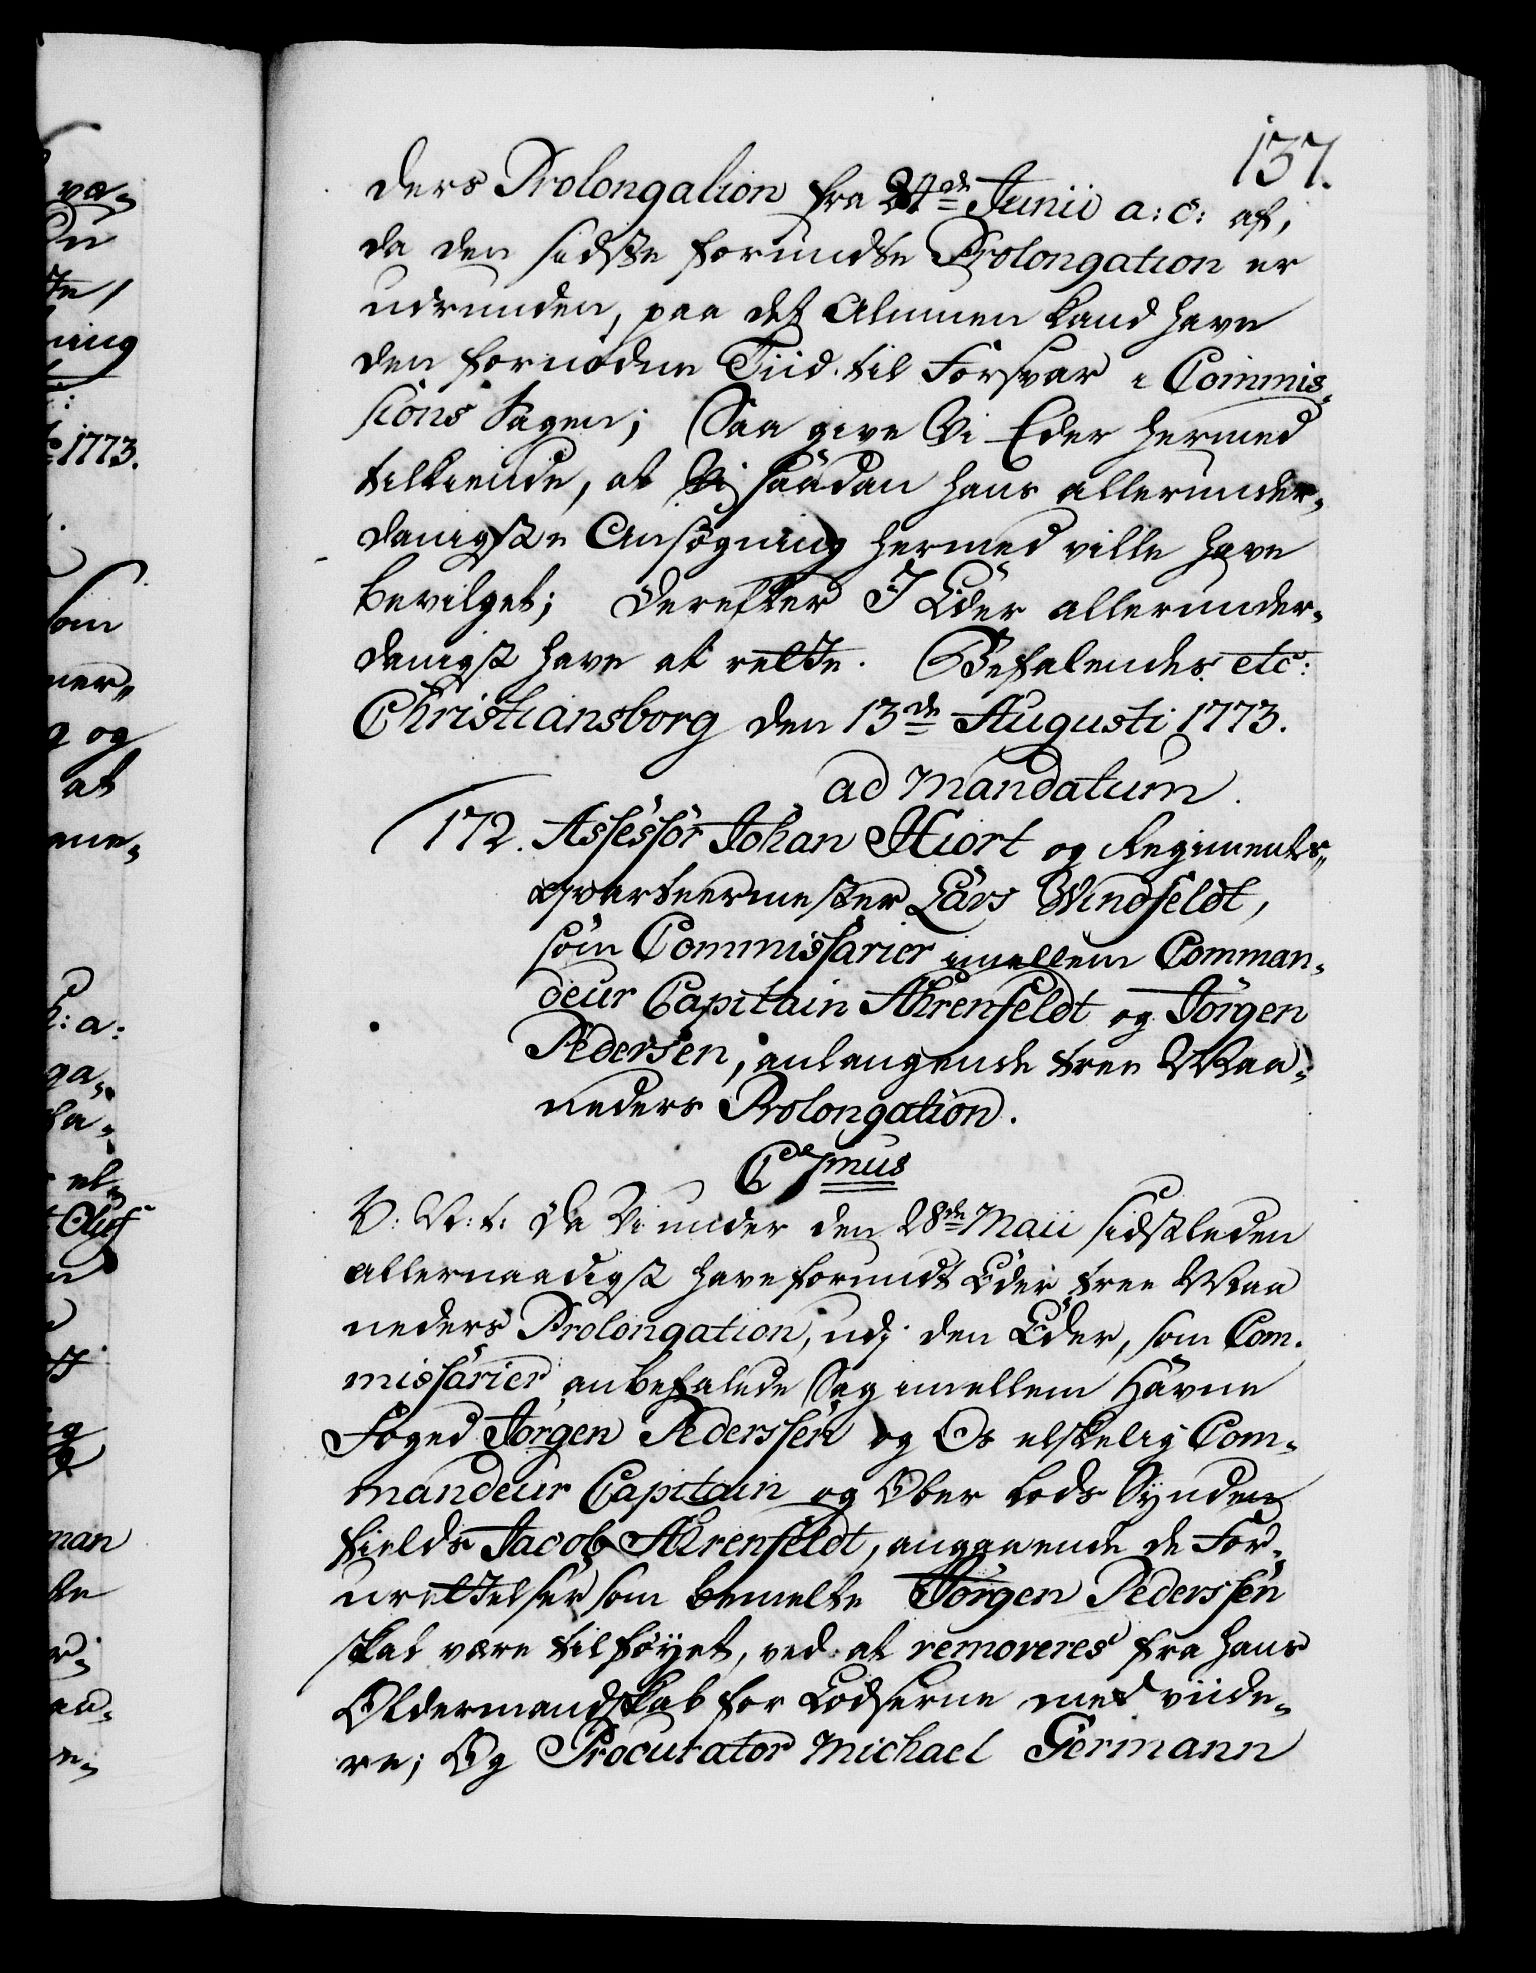 137.
ders Prolongation fra 24de Junii a: c: af,
da den sidste forundte Prolongation er
udrunden, paa det Alumen kand have
den fornødne Tiid til Forsvar i Commis„
sions Sagen; Saa give Vi Eder hermed
tilkiende, at Vi saadan hans allerunder„
danigste Ansøgning hermed ville have
bevilget; Derefter I Eder allerunder„
danigst have at rette. Befalendes etc:
Christiansborg den 13de Augusti 1773.
ad Mandatum.
172. Assessor Johan Hiort og Regiments„
qvarteermester Lars Windfeldt,
som Commissarier imellem Comman„
deur Capitain Ahrenfeldt og Jörgen
Pedersen, anlangende tree Maa„
neders Prolongation.
C 7mus
V: G: t: Da Vi under den 28de Maii sidstleden
allernaadigst have forundt Eder tree Maa
neders Prolongation, udj den Eder, som Com„
missarier anbefalede Sag imellem Havne
Foged Jörgen Pederssen og Os elskelig Com„
mandeur Capitain og Ober Lods Synden
fields Jacob Ahrenfeldt, angaaende de For„
urettelser som bemelte Jörgen Pederssen
skal være tilføyet, ved at removeres fra hans
Oldermandskab for Lodserne med viide„
re; Og Procurator Michael Germann
væ„
ning
1773.
som
ner„
g og
at
ene„
k: a:
ga„
ha„
Oluf
man